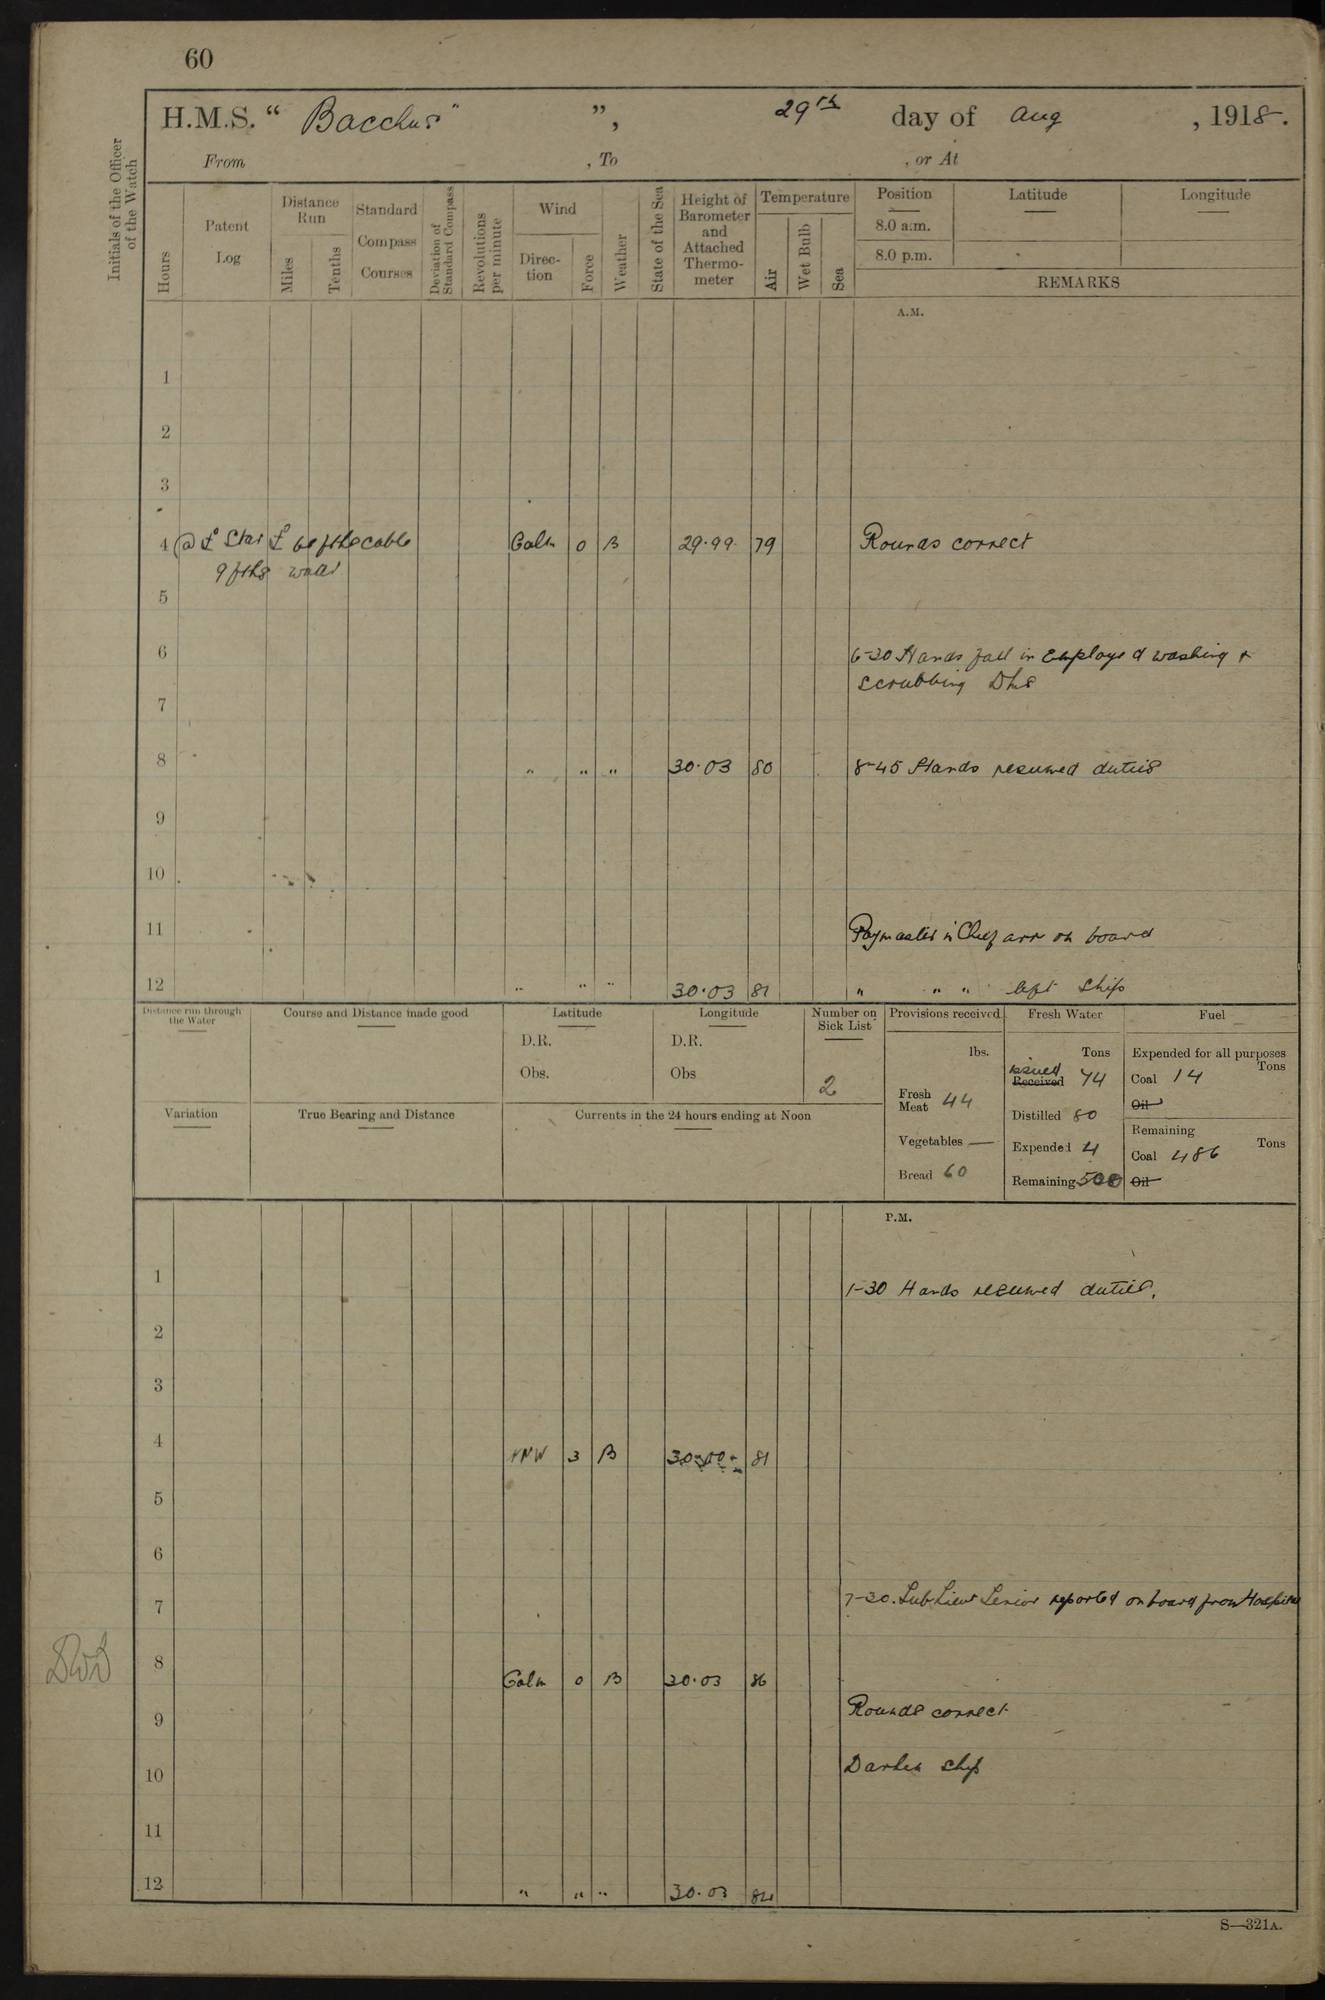 60
H.M.S. “ Bacchus” ”, 29th day of Aug , 1918.
From , To , or At
Initials of the Officer of the Watch
Hours
Patent Log
Distance Run
Miles
Tenths
Standard Compass Courses
Deviation of Standard Compass
Revolutions per minute
Wind
Direction
Force
Weather
State of the Sea
Height of Barometer and Attached Thermometer
Temperature
Air
Wet Bulb
Sea
Position Latitude Longitude
8.0 a.m.
8.0 p.m.
REMARKS
A.M.
1
2
3
4 @ Star cable Calm 0 B 29.99 79 Rounds correct
9 fths water
5
6 6-30 Hands fall in Employed washing +
scrubbing Dks
7
8 " " " 30.03 80 8-45 Hands resumed duties
9
10
11 Paymaster in Chief arr on board
12 " " " 30.03 81 " " " left ship
Distance run through the Water
Course and Distance made good
Latitude
D.R.
Obs.
Longitude
D.R.
Obs
Number on Sick List
2
Provisions received
lbs.
Fresh Meat 44
Vegetables —
Bread 60
Fresh Water
Tons
issued
Received 74
Distilled 80
Expended 4
Remaining 500
Fuel
Expended for all purposes
Tons
Coal 14
Oil
Remaining
Tons
Coal 486
Oil
Variation
True Bearing and Distance
Currents in the 24 hours ending at Noon
P.M.
1 1-30 Hands resumed duties.
2
3
4 NNW 3 B 81
5
6
7 7-30. Sub Lieut Senior reported on board from Hospital
8 Calm 0 B 30.03 86
9 Rounds correct
10 Darken ship
11
12 " " " 30.03 84
S—321A.